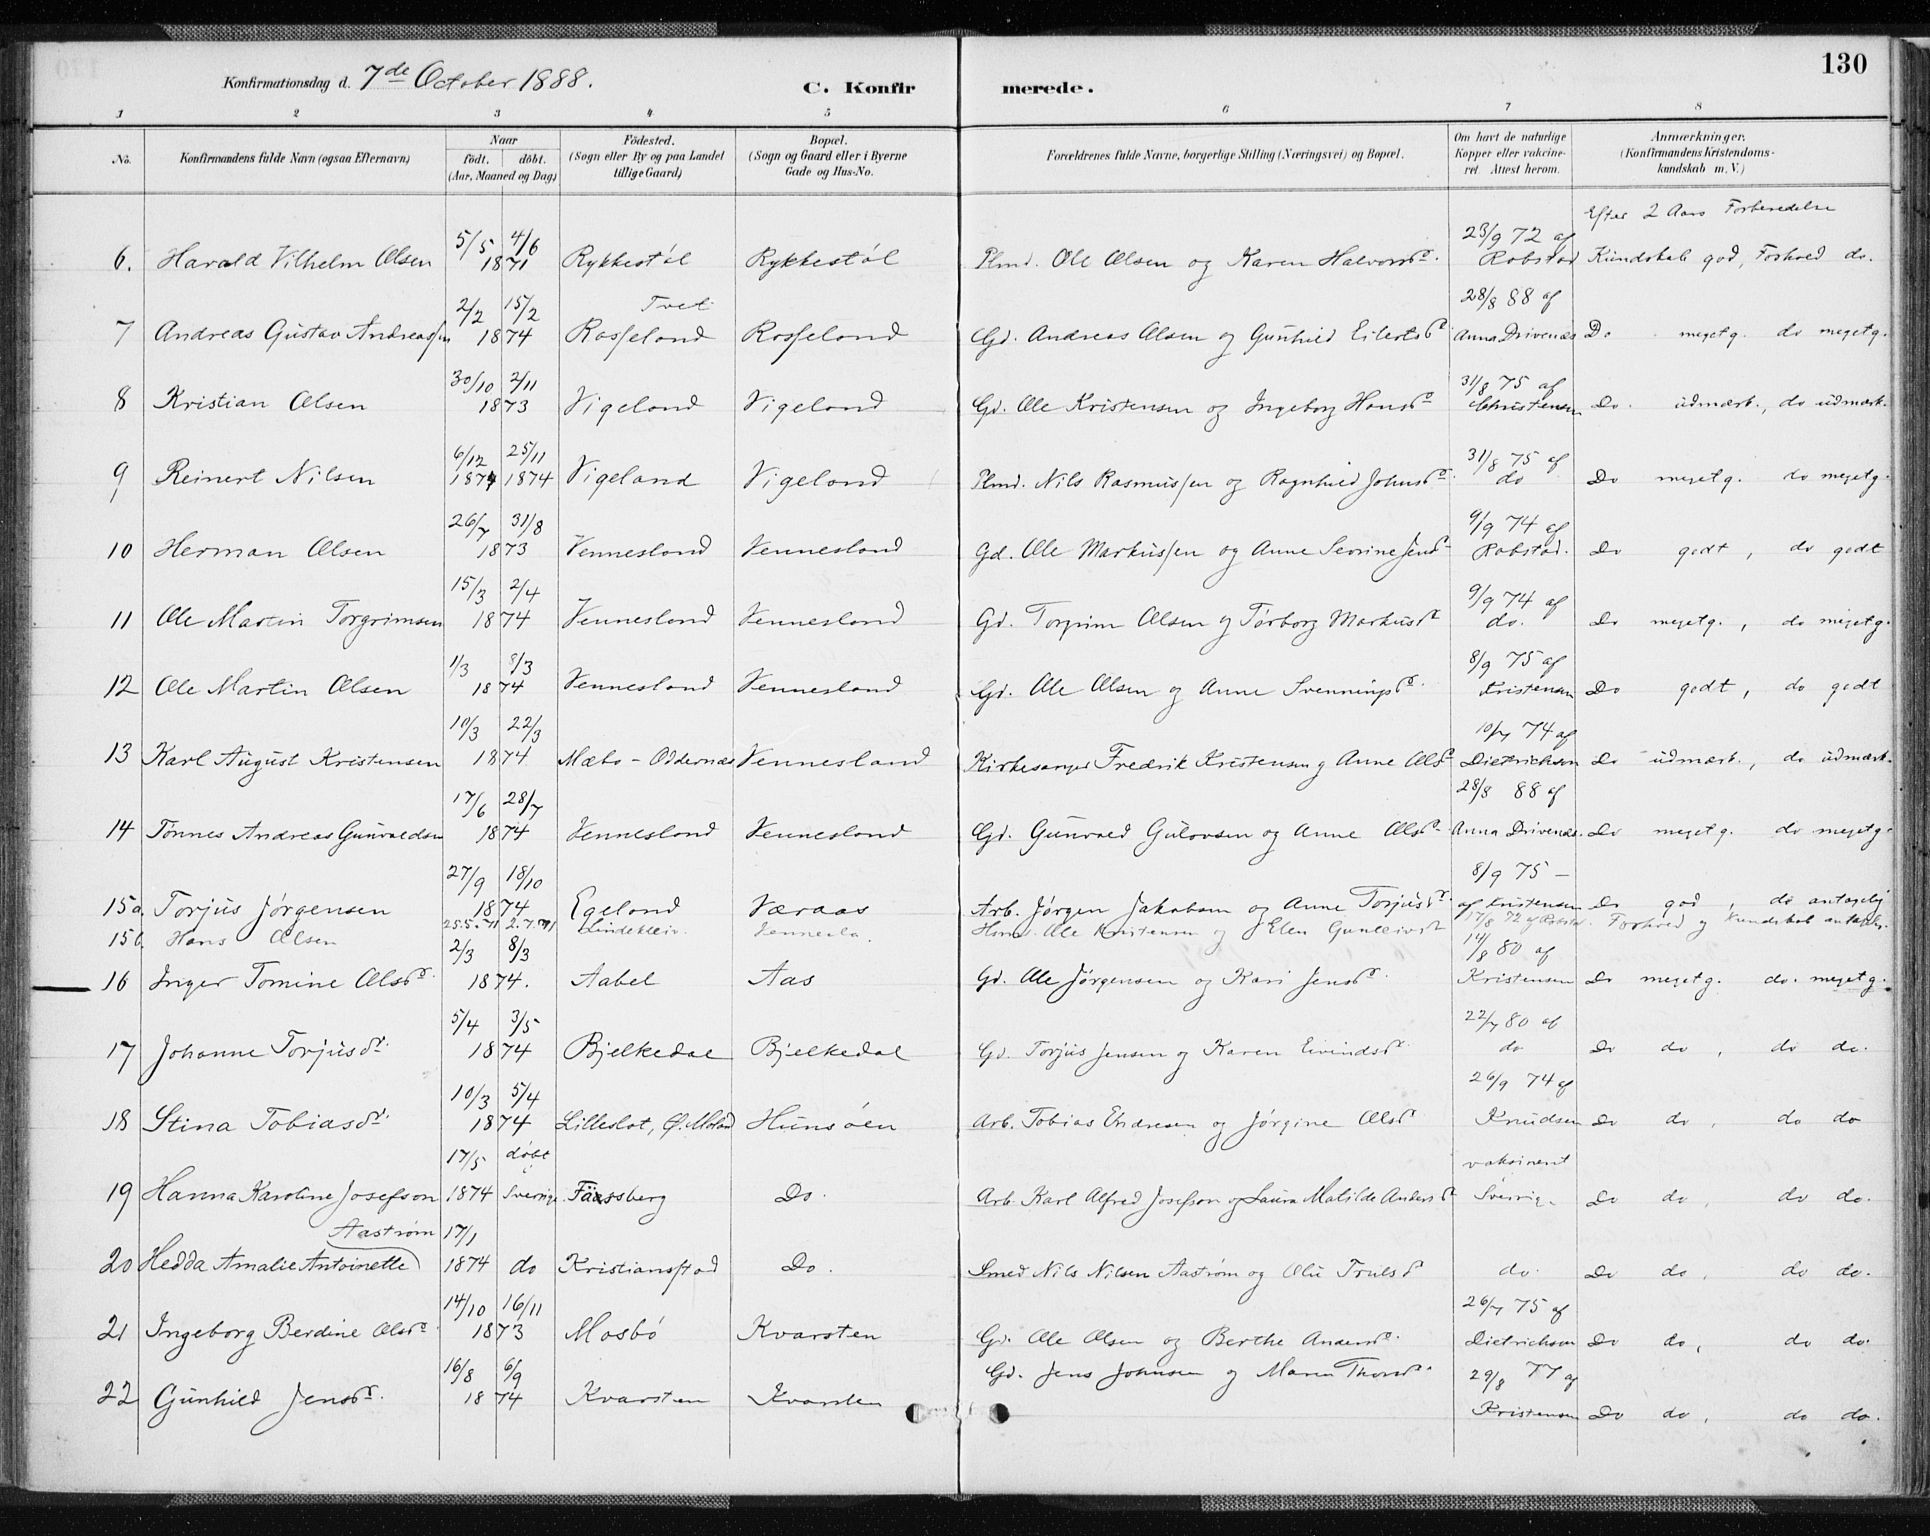 130
Konfirmationsdag d. 7de October 1888.
C. Konfirmerede.
1 2 3 4 5 6 7 8
No. Konfirmandens fulde Navn (ogsaa Efternavn) Naar födt. döbt. (Aar, Maaned og Dag) Födested. (Sogn eller By og paa Landet tillige Gaard) Bopæl. (Sogn og Gaard eller i Byerne Gade og Hus-No. Forældrenes fulde Navne, borgerlige Stilling (Næringsvei) og Bopæl. Om havt de naturlige Kopper eller vakcineret. Attest herom. Anmærkninger. (Konfirmandens Kristendomskundskab m. V.)
Efter 2 Aars Forberedelse
6. Harald Vilhelm Olsen 5/5 4/6 1871 Rykkestøl Rykkestøl Plmd. Ole Olsen og Karen Halvorsdr. 23/9 72 af Robstad Kundskab god, Forhold do.
7 Andreas Gustav Andreassen 2/2 15/2 1874 Tvet Rosseland Rosseland Gd. Andreas Olsen og Gunhild Eilertsdr 28/8 88 af Anna Drivenæs Do megetg. do megetg.
8 Kristian Olsen 30/10 2/11 1873 Vigeland Vigeland Gd. Ole Kristensen og Ingeborg Hansdr 31/8 75 af Christensen Do. udmærk., do udmærk.
9 Reinert Nilsen 6/12 1874 25/11 1874 Vigeland Vigeland Plmd. Nils Rasmussen og Ragnhild Johnsdr. 31/8 75 af do Do megetg. do megetg.
10 Herman Olsen 26/7 31/8 1873 Vennesland Vennesland Gd. Ole Markussen og Anne Severine Jensdr 9/9 74 af Robstad. Do godt, do godt
11 Ole Martin Torgrimsen 15/3 2/4 1874 Vennesland Vennesland Gd. Torgrim Olsen og Torborg Markusdr 9/9 74 af do. Do megetg., do megetg.
12 Ole Martin Olsen 1/3 8/3 1874 Vennesland Vennesland Gd. Ole Olsen og Anne Svenningsdr. 8/9 75 af Kristensen Do godt, do godt
13 Karl August Kristensen 10/3 22/3 1874 Mæbø - Oddernæs Vennesland Kirkesanger Fredrik Kristensen og Anne Olsdr 10/7 74 af Dietrichson Do udmærk., do udmærk.
14 Tønnes Andreas Gunvaldsen 17/6 28/7 1874 Vennesland Vennesland Gd. Gunvald Gulovsen og Anne Olsdr 28/8 88 af Anna Drivenæs. Do megetg. do megetg.
15a. Torjus Jørgensen 27/9 18/10 1874 Egeland Væraas Arb. Jørgen Jakobsen og Anne Torjusdr. 8/9 75 - af Kristensen Do god, do antagelig
15b. Hans Olsen 25.5.71 2.7.71 Lindekleiv. Vennesla. Hmd. Ole Kristensen og Elen Gunleivsdr 17/8 72 af Robstad. Forhold og Kundskab antagelig.
16 Inger Tomine Olsdr. 2/3 8/3 1874. Aabel Aas Gd. Ole Jørgensen og Kari Jensdr. 14/8 80 af Kristensen Do megetg. do. megetg.
17 Johanne Torjusdr. 5/4 3/5 1874 Bjelkedal Bjelkedal Gd. Torjus Jensen og Karen Eivindsdr. 22/7 80 af do Do do, do do.
18 Stina Tobiasdr. 10/3 5/4 1874 Lilleslot, Ø. Moland Hunsøen Arb. Tobias Endresen og Jørgine Olsdr 26/9 74 af Knudsen Do do, do do
19 Hanna Karoline Josefson 17/5 1874 døbt i Sverige Fässberg Do. Arb. Karl Alfred Josefson og Laura Matilde Andersdr vaksinert Sverrig. Do do, do do.
20 Hedda Amalie Antoinette Aastrøm 17/1 1874 do Kristiansstad Do. Smed Nils Nilsen Aastrøm og Olu Trulsdr do. Do do, do do.
21 Ingeborg Berdine Olsdr. 14/10 16/11 1873 Mosbø Kvarsten Gd. Ole Olsen og Berthe Andersdr. 26/7 75 af Dietrichson Do do, do do.
22 Gunhild Jensdr. 16/8 6/9 1874 Kvarsten Kvarsten Gd. Jens Johnsen og Maren Thorsdr. 29/8 77 af Kristensen Do do, do do.